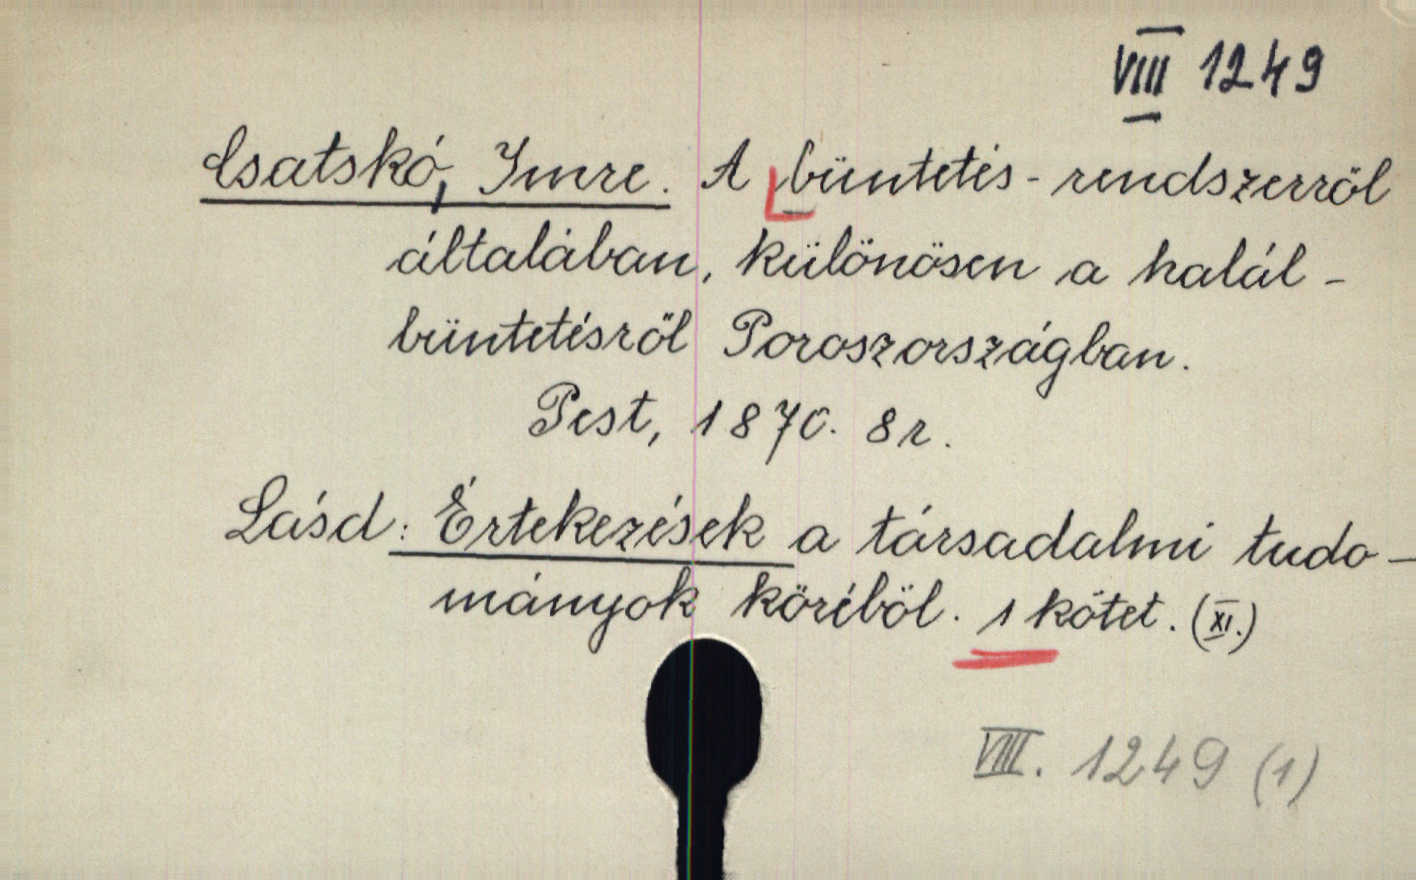 VIII 1249
Csatskó, Imre. A büntetés-rendszerröl
általában, különösen a halál-
büntetésről Poroszországban.
Pest, 1870. 8r.
Lásd: Értekezések a társadalmi tudo-
mányok köréböl. 1 kötet. (XI.)
VIII. 1249 (1)